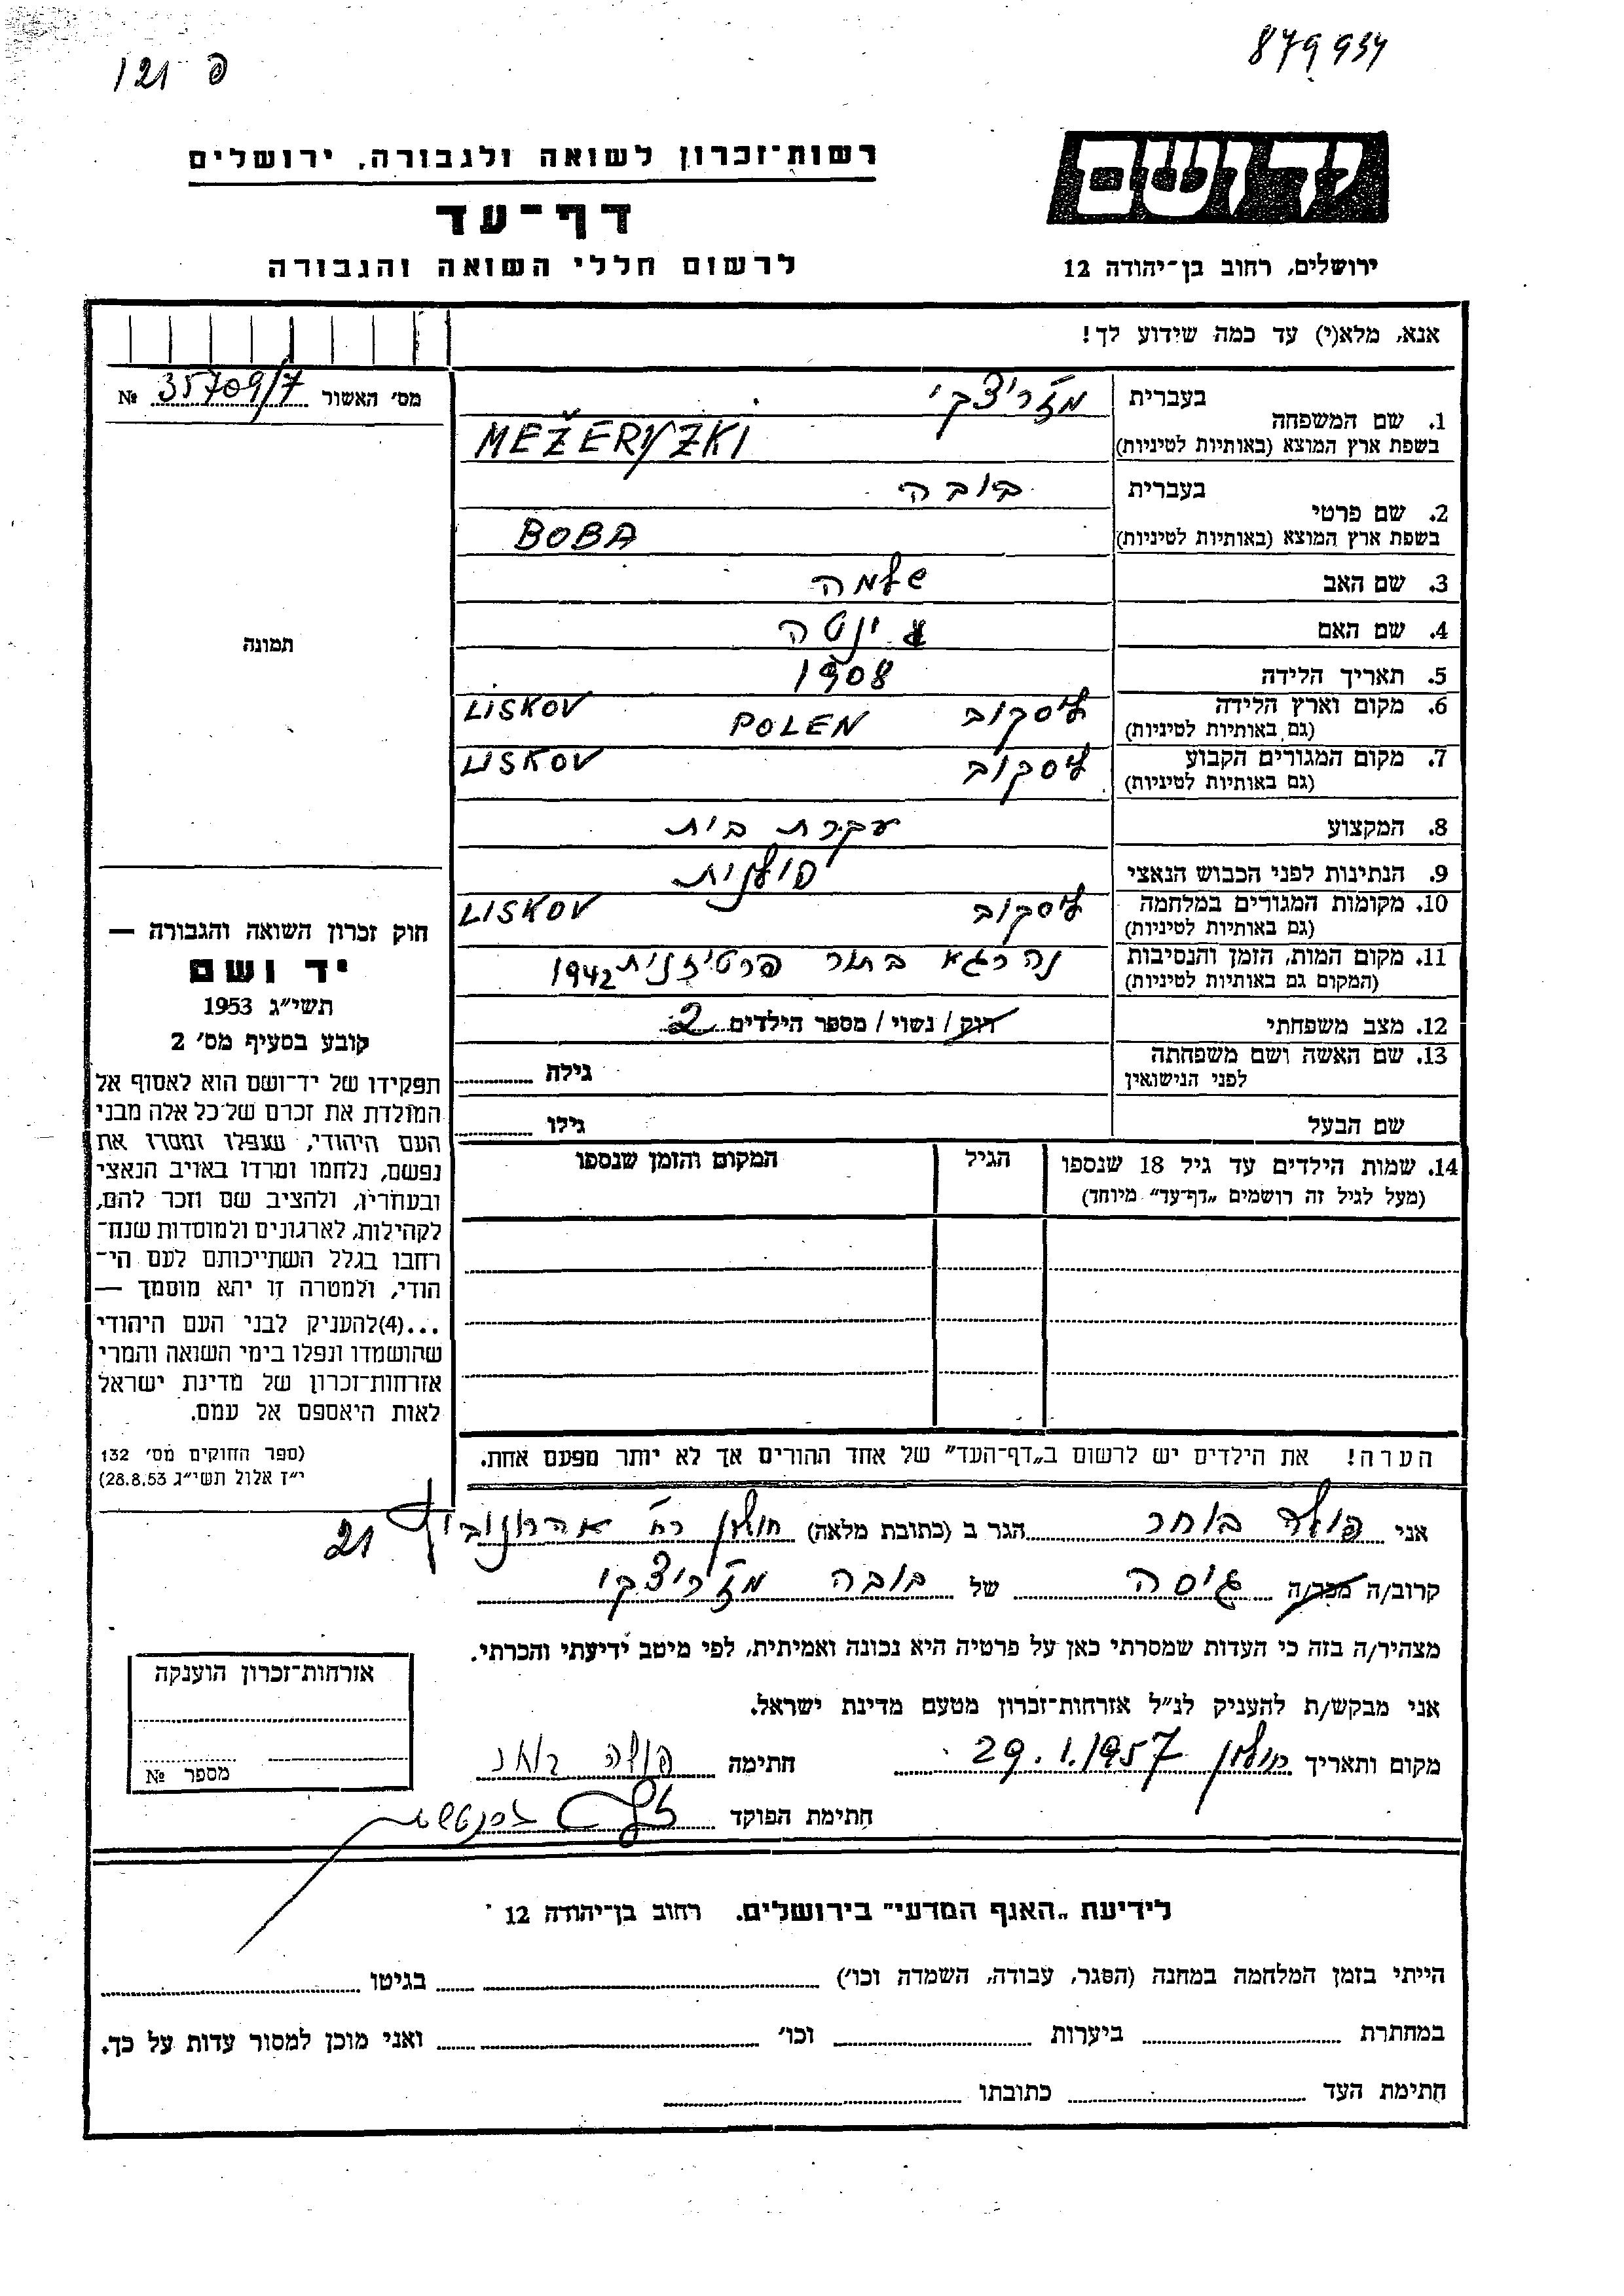 879934
פ 121
יד ושם
רשות־זכרון לשואה ולגבורה, ירושלים
דף־עד
לרשום חללי השואה והגבורה
ירושלים, רחוב בן־יהודה 12
אנא, מלא(י) עד כמה שידוע לך!
מס׳ האשור 35709/7 №
1. שם המשפחה
בעברית מז׳ריצקי
בשפת ארץ המוצא (באותיות לטיניות) MEŽERYZKI
2. שם פרטי
בעברית בובה
בשפת ארץ המוצא (באותיות לטיניות) BOBA
3. שם האב שלמה
4. שם האם ינטה
5. תאריך הלידה 1908
6. מקום וארץ הלידה ליסקוב POLEN LISKOV
(גם באותיות לטיניות)
7. מקום המגורים הקבוע ליסקוב LISKOV
(גם באותיות לטיניות)
8. המקצוע עקרת בית
9. הנתינות לפני הכבוש הנאצי פולנית
10. מקומות המגורים במלחמה ליסקוב LISKOV
(גם באותיות לטיניות)
11. מקום המות, הזמן והנסיבות נהרגא בתור פרטיזנית 1942
(המקום גם באותיות לטיניות)
12. מצב משפחתי רוק / נשוי / מספר הילדים 2
13. שם האשה ושם משפחתה גילה
לפני הנישואין
שם הבעל גילו
14. שמות הילדים עד גיל 18 שנספו הגיל המקום והזמן שנספו
(מעל לגיל זה רושמים „דף־עד" מיוחד)
הערה! את הילדים יש לרשום ב„דף־העד" של אחד ההורים אך לא יותר מפעם אחת.
תמונה
חוק זכרון השואה והגבורה —
יד ושם
תשי״ג 1953
קובע בסעיף מס׳ 2
תפקידו של יד־ושם הוא לאסוף אל
המולדת את זכרם של כל אלה מבני
העם היהודי, שנפלו ומסרו את
נפשם, נלחמו ומרדו באויב הנאצי
ובעוזריו, ולהציב שם וזכר להם,
לקהילות, לארגונים ולמוסדות שנח־
רבו בגלל השתייכותם לעם הי־
הודי, ולמטרה זו יהא מוסמך —
...(4)להעניק לבני העם היהודי
שהושמדו ונפלו בימי השואה והמרי
אזרחות־זכרון של מדינת ישראל
לאות היאספם אל עמם.
(ספר החוקים מס׳ 132
י״ז אלול תשי״ג 28.8.53)
אני פולה בוחר הגר ב (כתובת מלאה) חולון רח׳ אהרונוביץ 21
קרוב/ה מכר/ה גיסה של בובה מז׳ריצקי
מצהיר/ה בזה כי העדות שמסרתי כאן על פרטיה היא נכונה ואמיתית, לפי מיטב ידיעתי והכרתי.
אני מבקש/ת להעניק לנ״ל אזרחות־זכרון מטעם מדינת ישראל.
מקום ותאריך חולון 29.1.1957 חתימה פולה בוחר
חתימת הפוקד
אזרחות־זכרון הוענקה
מספר №
לידיעת „האגף המדעי" בירושלים. רחוב בן־יהודה 12
הייתי בזמן המלחמה במחנה (הסגר, עבודה, השמדה וכו׳) בגיטו
במחתרת ביערות וכו׳ ואני מוכן למסור עדות על כך.
חתימת העד כתובתו